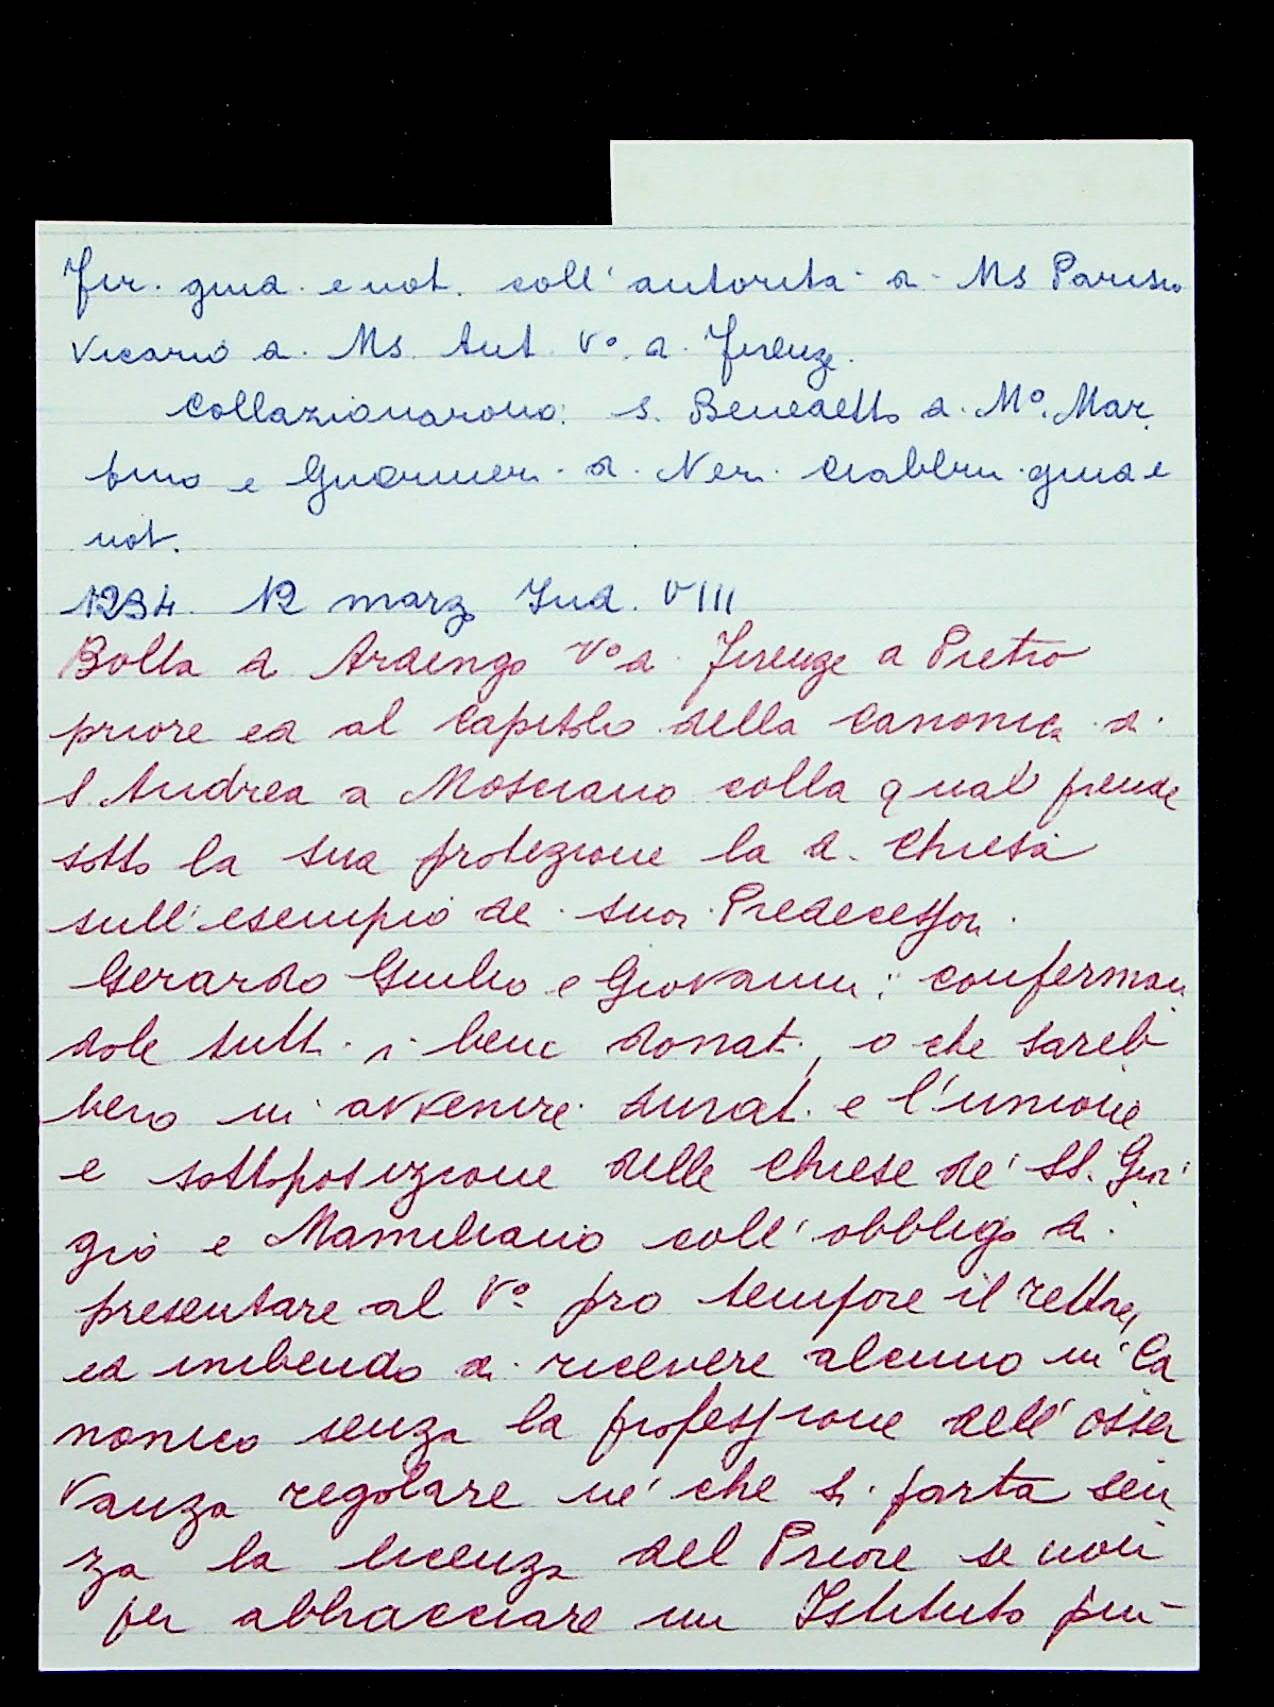 Fir. giud. e not. coll' autorità di Ms Parisio
Vicario d. Ms. Ant. Vo. d. Firenze.
Collazionarono: s. Benedetto d. Mo. Mar
tino e Guarnieri d. Neri giud e
not.
1234. 12 marzo Ind. VIII
Bolla d Ardengo Vo d. Firenze a Pietro
priore ed al Capitolo della Canonica di
S. Andrea a Mosciano colla qual prende
sotto la sua protezione la d. Chiesa
sull' esempio de suoi Predecessori.
Gerardo Giulio e Giovanni; conferman
dole tutti i beni donati, o che sareb
bero in avvenire donati e l'unione
e sottoposizione delle Chiese de' SS. Gior
gio e Mamiliano coll' obbligo di
presentare al Vo pro tempore il rettore,
ed inibendo di ricevere alcuno in Ca
nonico senza la professione dell' osser
vanza regolare né che si parta sen
za la licenza del Priore se non
per abbracciare un Istituto più